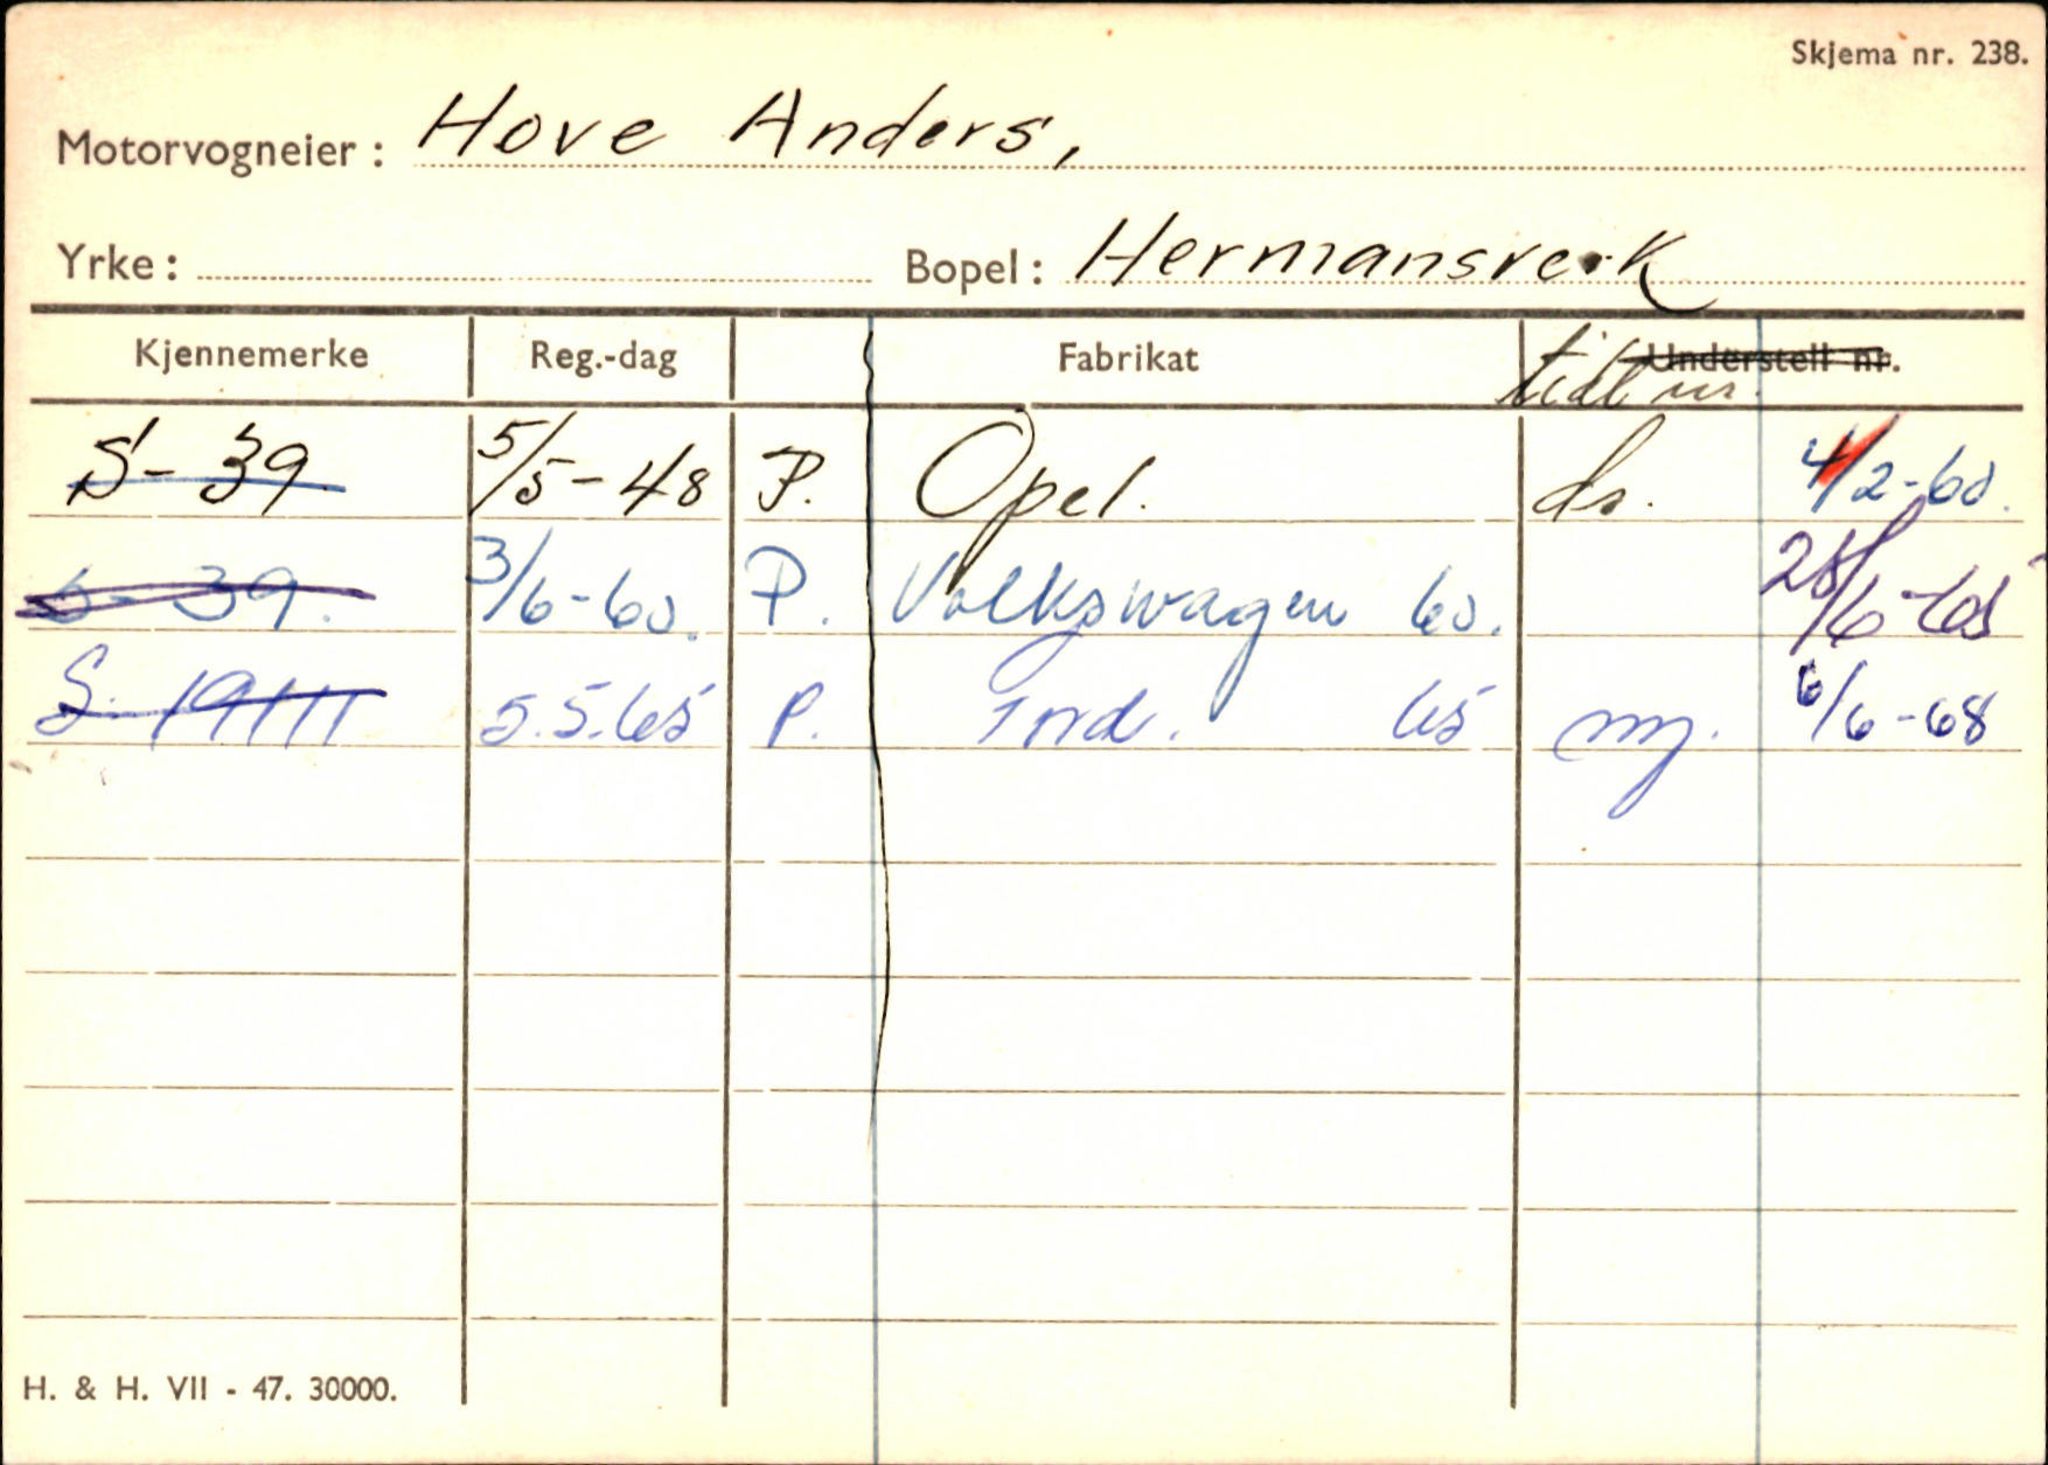 Skjema nr. 238.
Motorvogneier: Hove Anders,
Yrke: Bopel: Hermansverk
Kjennemerke Reg.-dag Fabrikat Understell nr.
nr.
S-39 5/5-48 P. Opel. 4/2-60.
S-39. 3/6-60. P. Volkswagen 60. 28/6-65
S-19111 5.5.65 P. 65 ny. 6/6-68
H. & H. VII - 47. 30000.